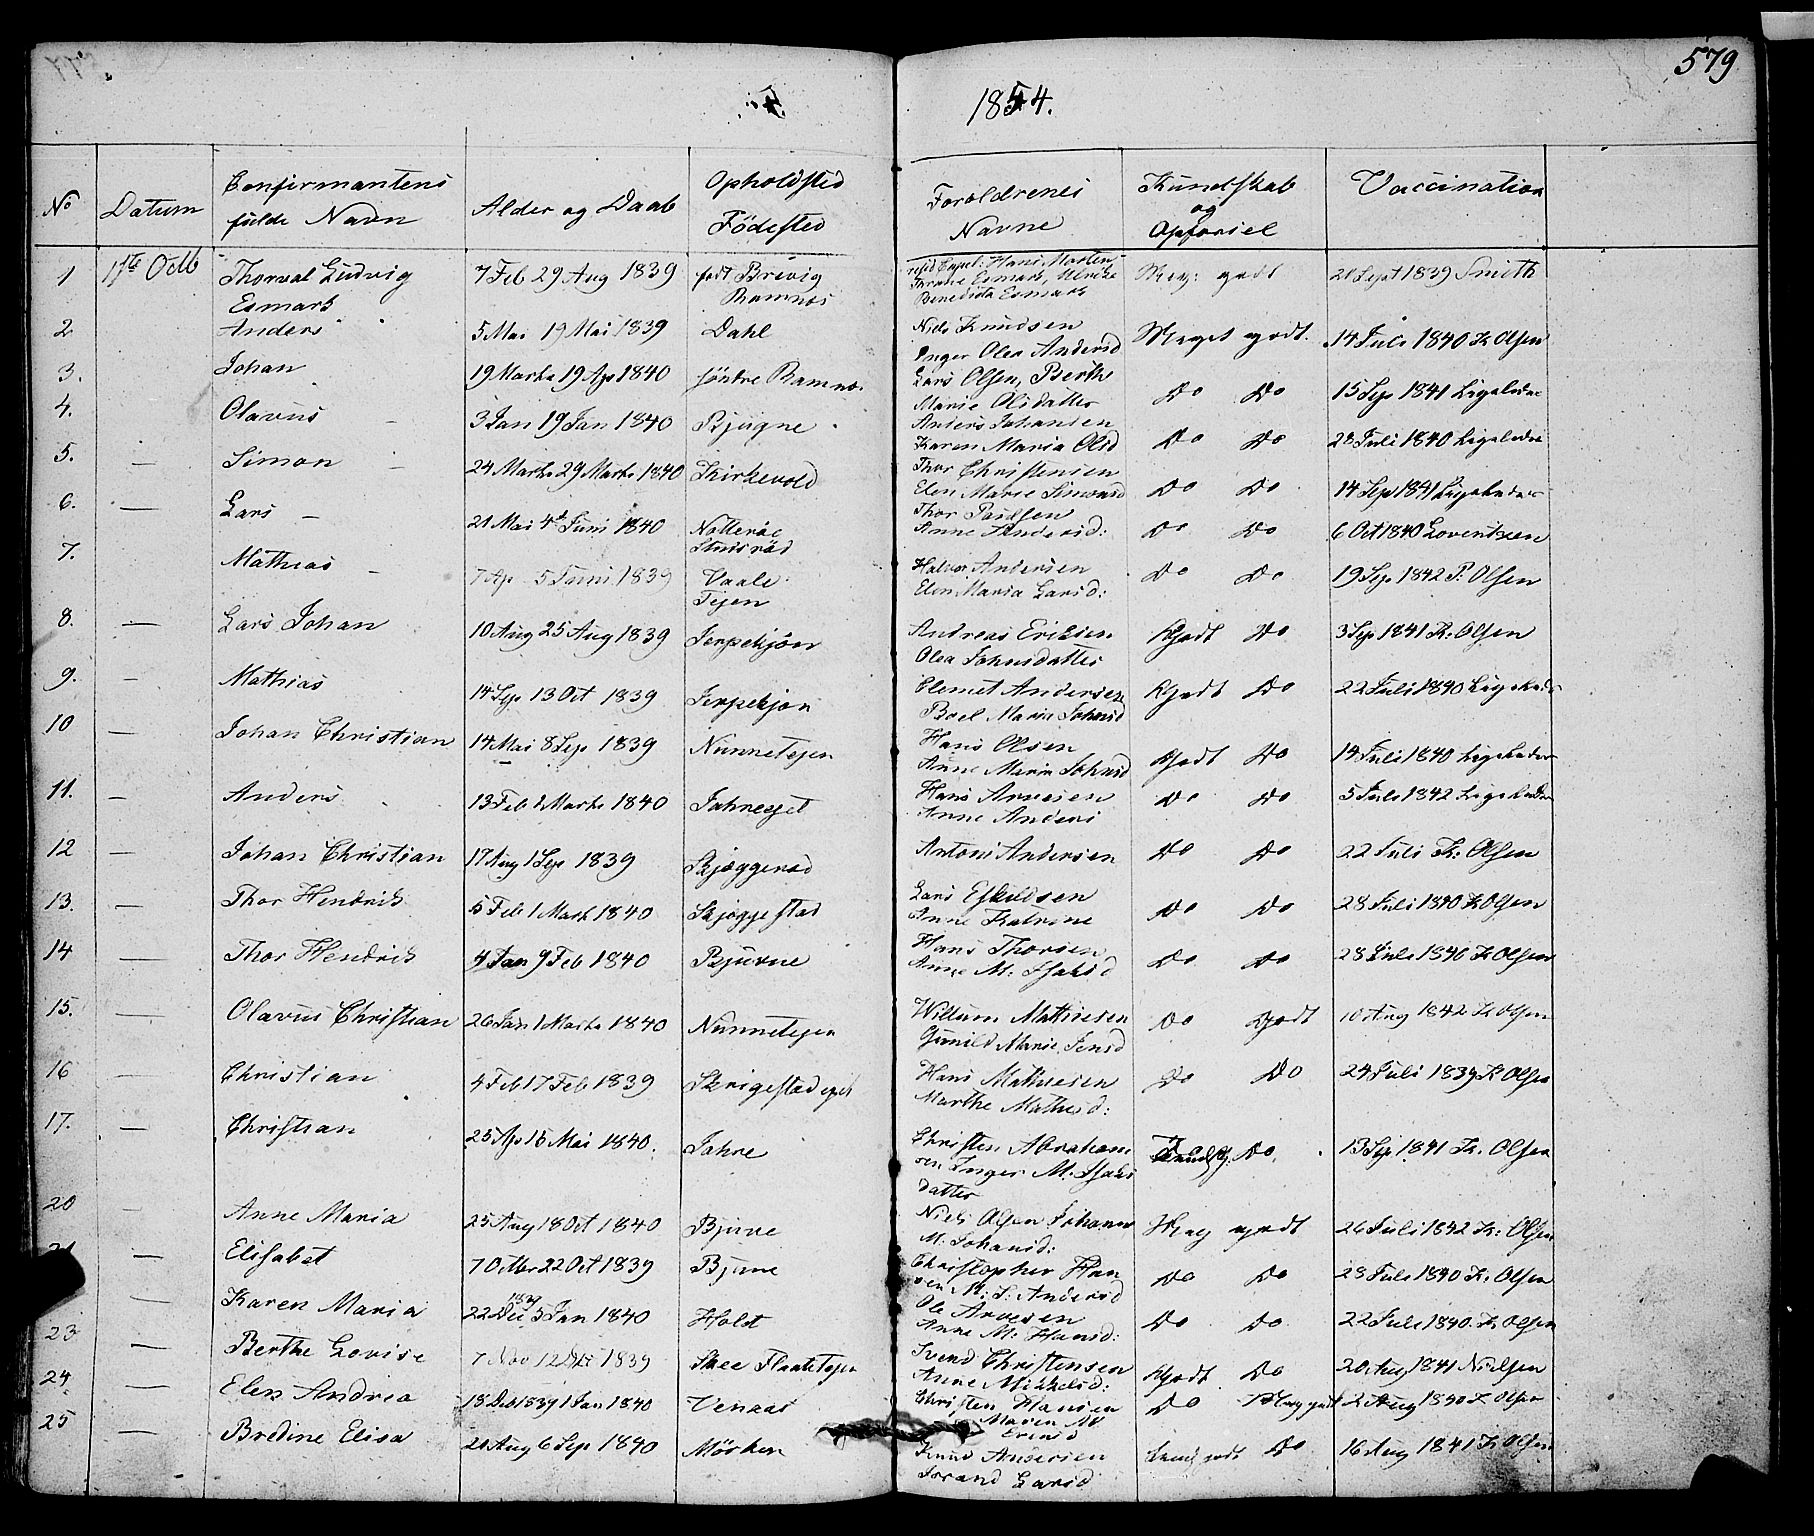 579
1854.
No Datum Confirmantens fulde Navn Alder og Daab Opholdsted Födested Foreldrenes Navne Kundskab og Opførsel Vaccination
1 1ste Octb Thorval Ludvig Esmark 7 Feb 29 Aug 1839 født Brevig Ramnæs resid Capel: Hans Morten Thrane Esmark, Ulricke Benedicta Esmark Meg: godt 21 Sept 1839 Smith
2 Anders 5 Mai 19 Mai 1839 Dahl Niels Knudsen Inger Olea Andersd Meget godt. 14 Juli 1840 K Olsen
3. Johan 19 Marts 19 Ap 1840 söndre Ramnæs Lars Olsen, Berthe Marie Olsdatter Do Do 15 Sep 1841 Ligeledes
4. Olavus 3 Jan 19 Jan 1840 Bjugne Anders Johansen Karen Maria Olsd Do Do 28 Juli 1840 Ligeledes
5. — Simon 24 Marts 29 Marts 1840 Kirkevold Thor Christensen Elen Marie Simonsd Do Do 14 Sep 1841 Ligeledes
6. — Lars 21 Mai 4de Juni 1840 Nötteröe Thor Paulsen Anne Andersd: Do Do 6 Oct 1840 Lorentzen
7. Mathias 7 Ap 5 Juni 1839 Vaale Tejen Halvor Andersen Elen Maria Larsd: Do Do 19 Sep 1842 P. Olsen
8. — Lars Johan 10 Aug 25 Aug 1839 Jerpekjøn Andreas Eriksen Olea Johnsdatter Godt Do 3 Sep 1841 K: Olsen
9. — Mathias 14 Sep 13 Oct 1839 Jerpekjøn Clemet Andersen Boel Maria Johnsd Godt Do 22 Juli 1840 Ligeledes
10 — Johan Christian 14 Mai 8 Sep 1839 Nunnetejen Hans Olsen Anne Maria Johnsd Godt Do 14 Juli 1840 Ligeledes
11. — Anders 13 Feb 1 Marts 1840 Jahreeget Hans Arvesen Anne Anders Do Do 5 Juli 1842 Ligeledes
12 — Johan Christian 17 Aug 1 Sep 1839 Skjæggerød Antoni Andersen Do Do 22 Juli K: Olsen
13. — Thor Hendrik 5 Feb 1 Marts 1840 Skjæggestad Lars Eskildsen Anne Katrine Do Do 28 Juli 1840 K Olsen
14 — Thor Hendrik 4 Jan 9 Feb 1840 Bjurne Hans Thorsen Anne M: Isaksd Do Do 28 Juli 1840 K Olsen
15. — Olavus Christian 26 Jan 1 Marts 1840 Nunnetejen Willum Mathiesen Gunild Marie Jensd Do Godt 10 Aug 1842 K Olsen
16 — Christian 4 Feb 17 Feb 1839 Skrigestad eget Hans Mathiesen Marthe Mathisd: Do Do 24 Juli 1839 K Olsen
17. — Christian 25 Ap 15 Mai 1840. Jahre Christen Abrahamsen Inger M. Isaksdatter Do. 13 Sep 1841 K. Olsen
20 — Anne Maria 25 Aug 18 Oct 1840 Bjurne Niels Olsen Johanne M: Johansd: Meg godt 26 Juli 1842 K: Olsen
21 — Elisabet 7 Octbr 22 Oct 1839 Bjurne Christopher Hansen M: L: Andersd Do Do 28 Juli 1840 K. Olsen
— Karen Maria 22 Dec 1839 5 Jan 1840 Holst Ole Arvesen Anne M. Hansd: Do Do 22 Juli 1840. K Olsen
23 — Berthe Lovise 7 Nov 12 1839 Skee Flaatetejen Svend Christensen Anne Mikkelsd: Godt Do 20 Aug 1841 Nielsen
24. — Elen Andrea 18 Deb 1839 1 Jan 1840 Venaas Christen Hansen Maren M Evensd Do Meg godt 2 Aug 1840 K Olsen
25 — Bredine Elisa 21 Aug 6 Sep 1840 Mörken Knud Andersen Jorand Larsd godt Do 16 Aug 1841 K Olsen